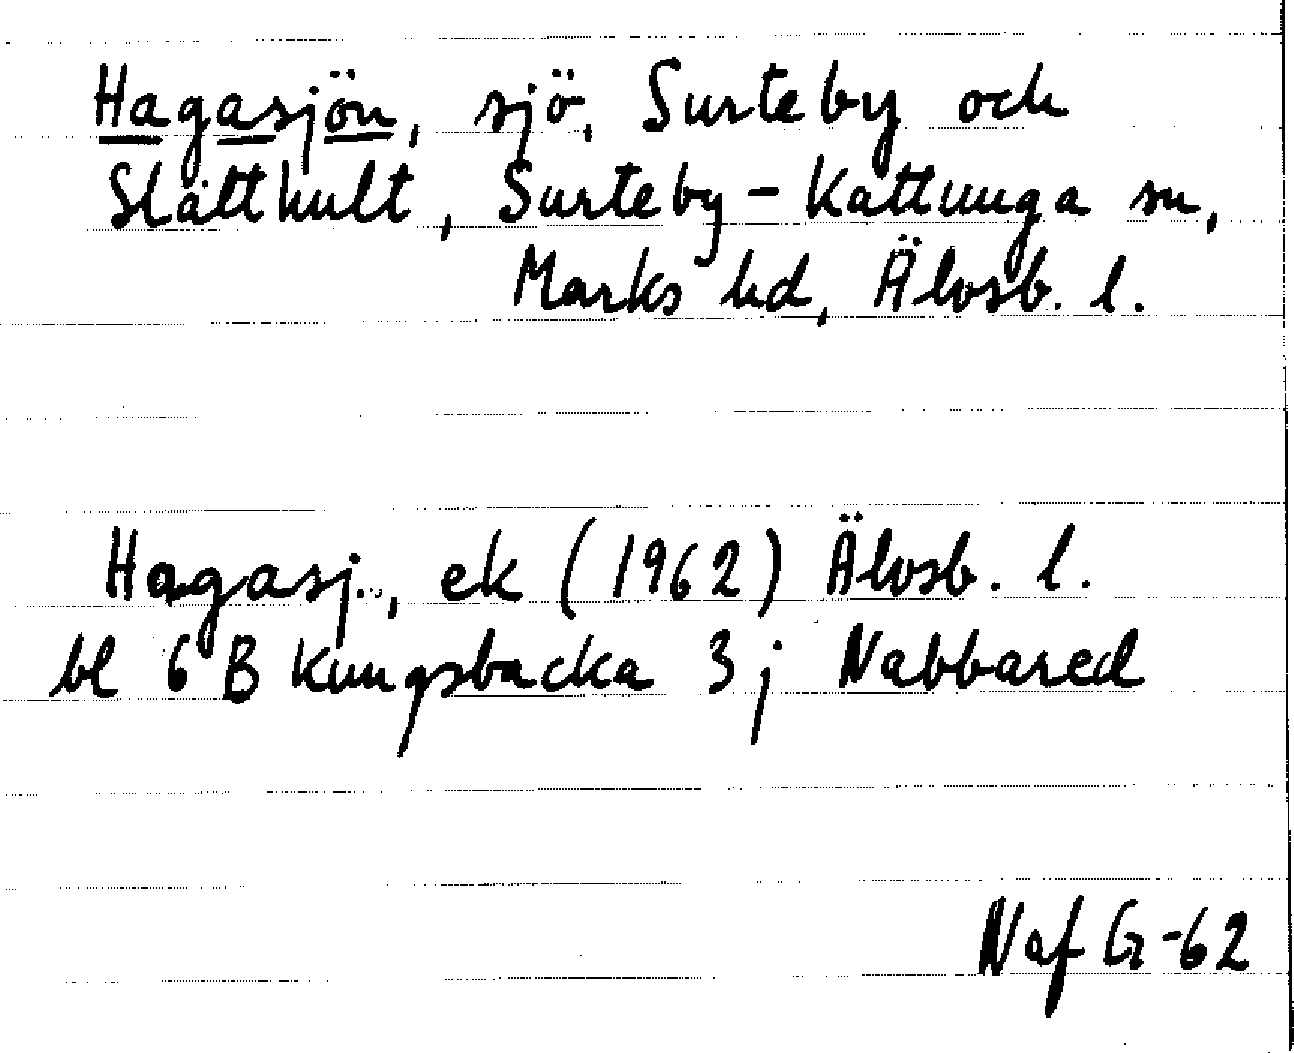 Hagasjön, sjö, Surteby och
Slätthult, Surteby-Kattunga sn,
Marks hd, Älvsb. l.
Hagasj., ek (1962) Älvsb. l.
bl 6 B Kungsbacka 3 j Nabbared
Naf G-62